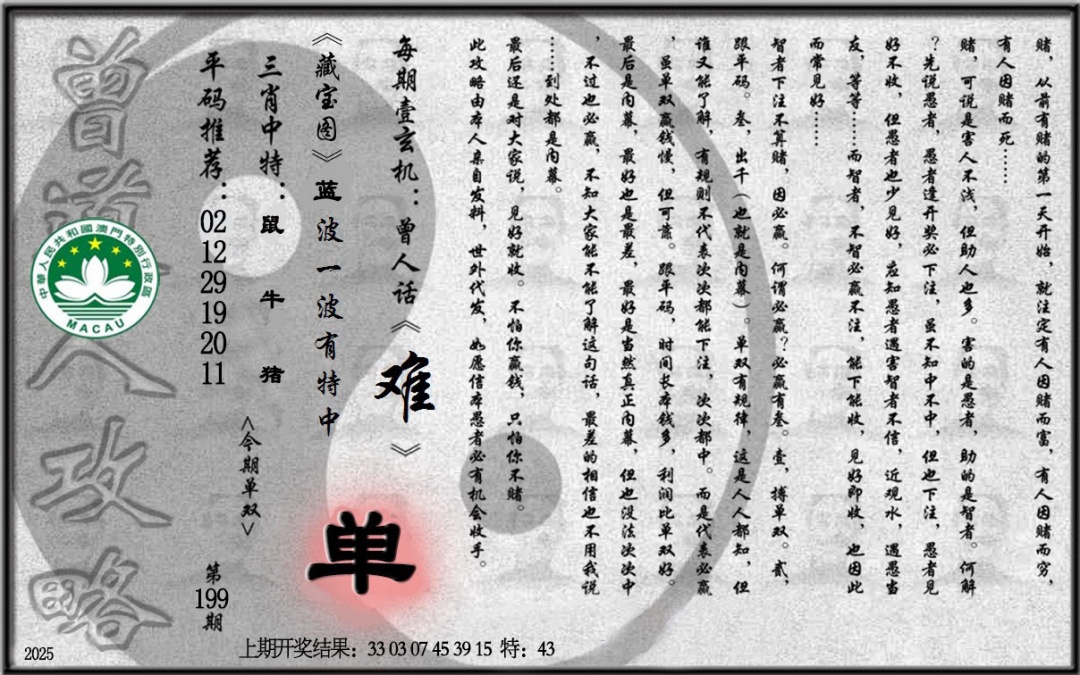 赌，从前有赌的第一天开始，就注定有人因赌而富，有人因赌而穷，
有人因赌而死……
赌，可说是害人不浅，但助人也多。害的是愚者，助的是智者。何解
？先说愚者，愚者逢开奖必下注，虽不知中不中，但也下注，愚者见
好不收，但愚者也少见好，应知愚者遇害智者不信，近观水，遇愚当
友，等等……而智者，不智必赢不注，能下能收，见好即收，也因此
而常见好……
智者下注不算赌，因必赢。何谓必赢？必赢有叁。壹，搏单双。贰，
跟平码。叁，出千（也就是内幕）。单双有规律，这是人人都知，但
谁又能了解，有规则不代表次次都能下注，次次都中。而是代表必赢
，虽单双赢钱慢，但可靠。跟平码，时间长本钱多，利润比单双好。
最后是内幕，最好也是最差，最好是当然真正内幕，但也没法次次中
，不过也必赢，不知大家能不能了解这句话，最差的相信也不用我说
……到处都是内幕。
最后还是对大家说，见好就收。不怕你赢钱，只怕你不赌。
此攻略由本人亲自发料，世外代发，如愿信本愚者必有机会收手。
每期壹玄机：曾人话《难》
《藏宝图》蓝波一波有特中
单
三肖中特：鼠 牛 猪
<今期单双>
平码推荐：02 12 29 19 20 11
第199期
曾道人攻略
中華人民共和國澳門特別行政區
MACAU
2025
上期开奖结果：33 03 07 45 39 15 特：43